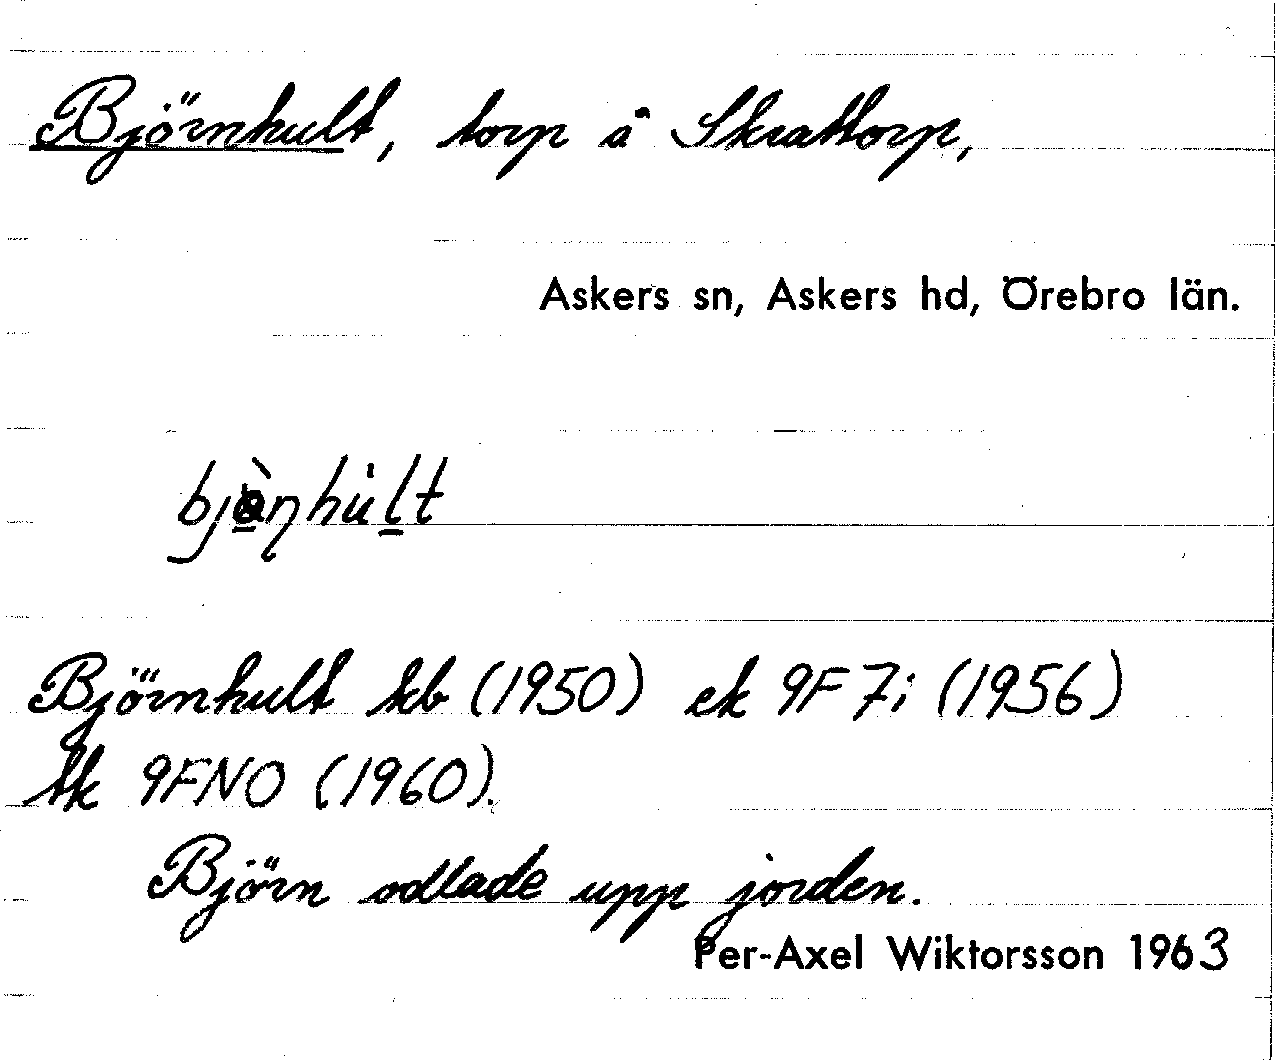 Björnhult, torp å Skrattorp,
Askers sn, Askers hd, Örebro län.
Björnhult kb (1950) ek 9F 7i (1956)
tk 9FNO (1960).
Björn odlade upp jorden.
Per-Axel Wiktorsson 1963